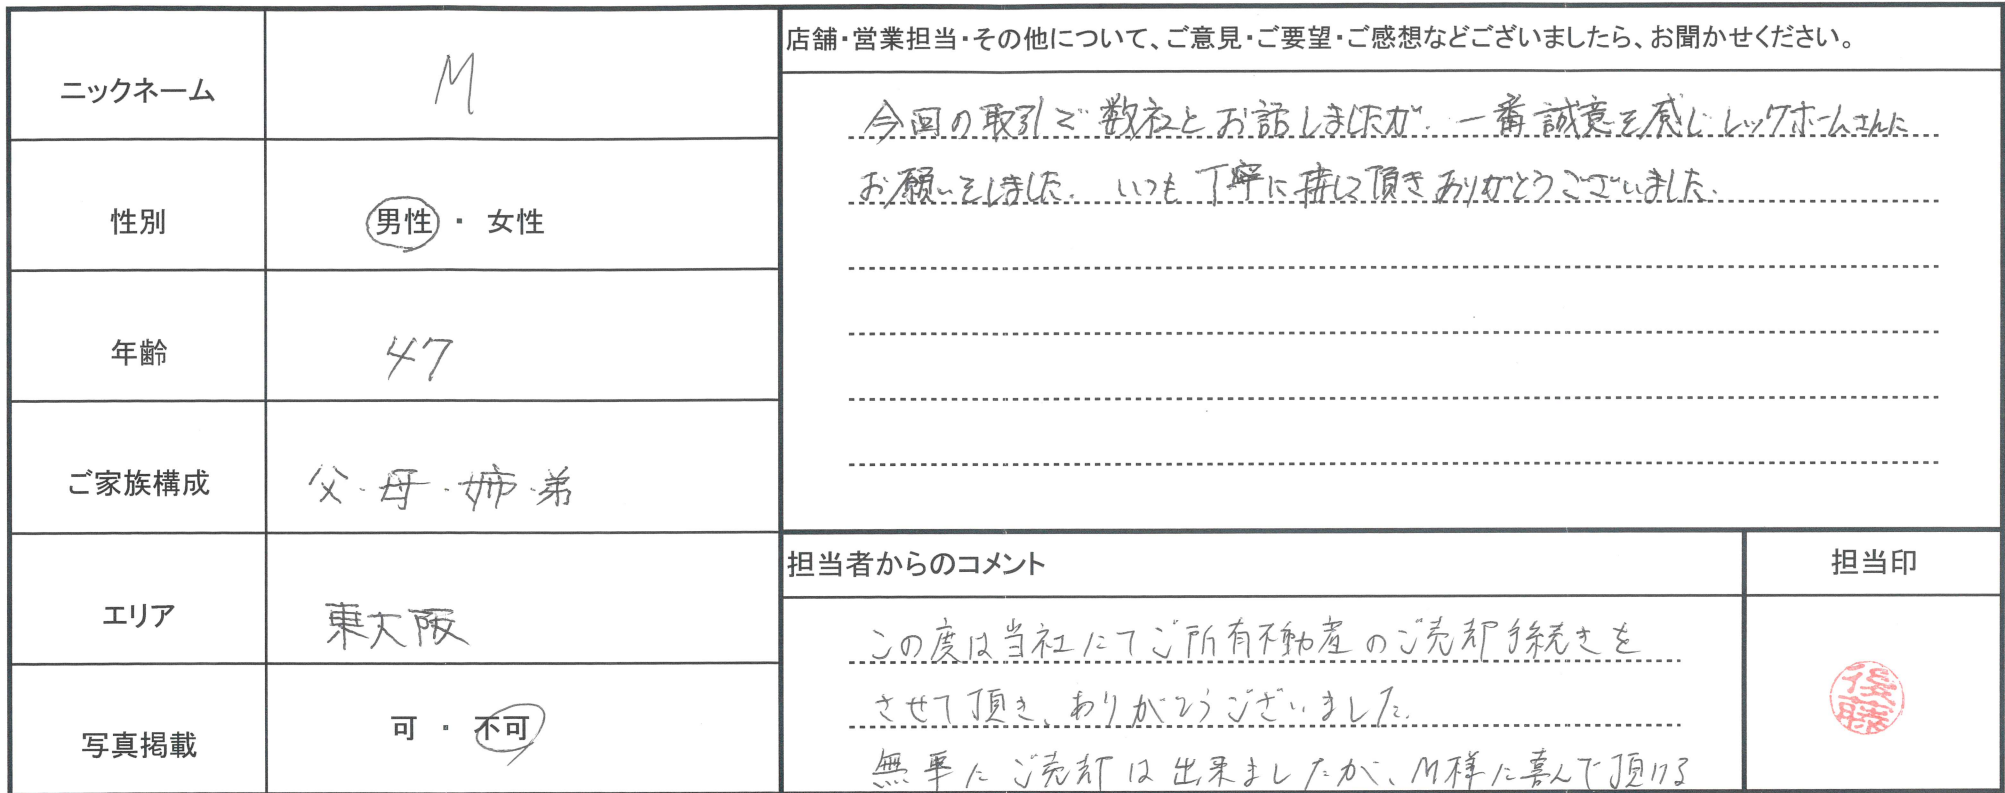 ニックネーム
M
性別
男性 ・ 女性
年齢
47
ご家族構成
父・母・姉・弟
エリア
東大阪
写真掲載
可 ・ 不可
店舗・営業担当・その他について、ご意見・ご要望・ご感想などございましたら、お聞かせください。
今回の取引で数社とお話しましたが、一番誠意を感じレックホームさんに
お願いをしました。いつも丁寧に接して頂きありがとうございました。
担当者からのコメント
この度は当社にてご所有不動産のご売却手続きを
させて頂き、ありがとうございました。
無事にご売却は出来ましたが、M様に喜んで頂ける
担当印
後藤